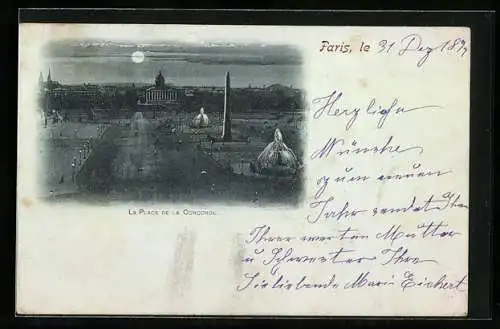 Paris, le 31 Dez 189
Herzliche
Wünsche
zum neuen
Jahr sendet Ihnen
Ihrer werten Mutter
u Schwester Ihre
Sie liebende Marie Eichert
LA PLACE DE LA CONCORDE